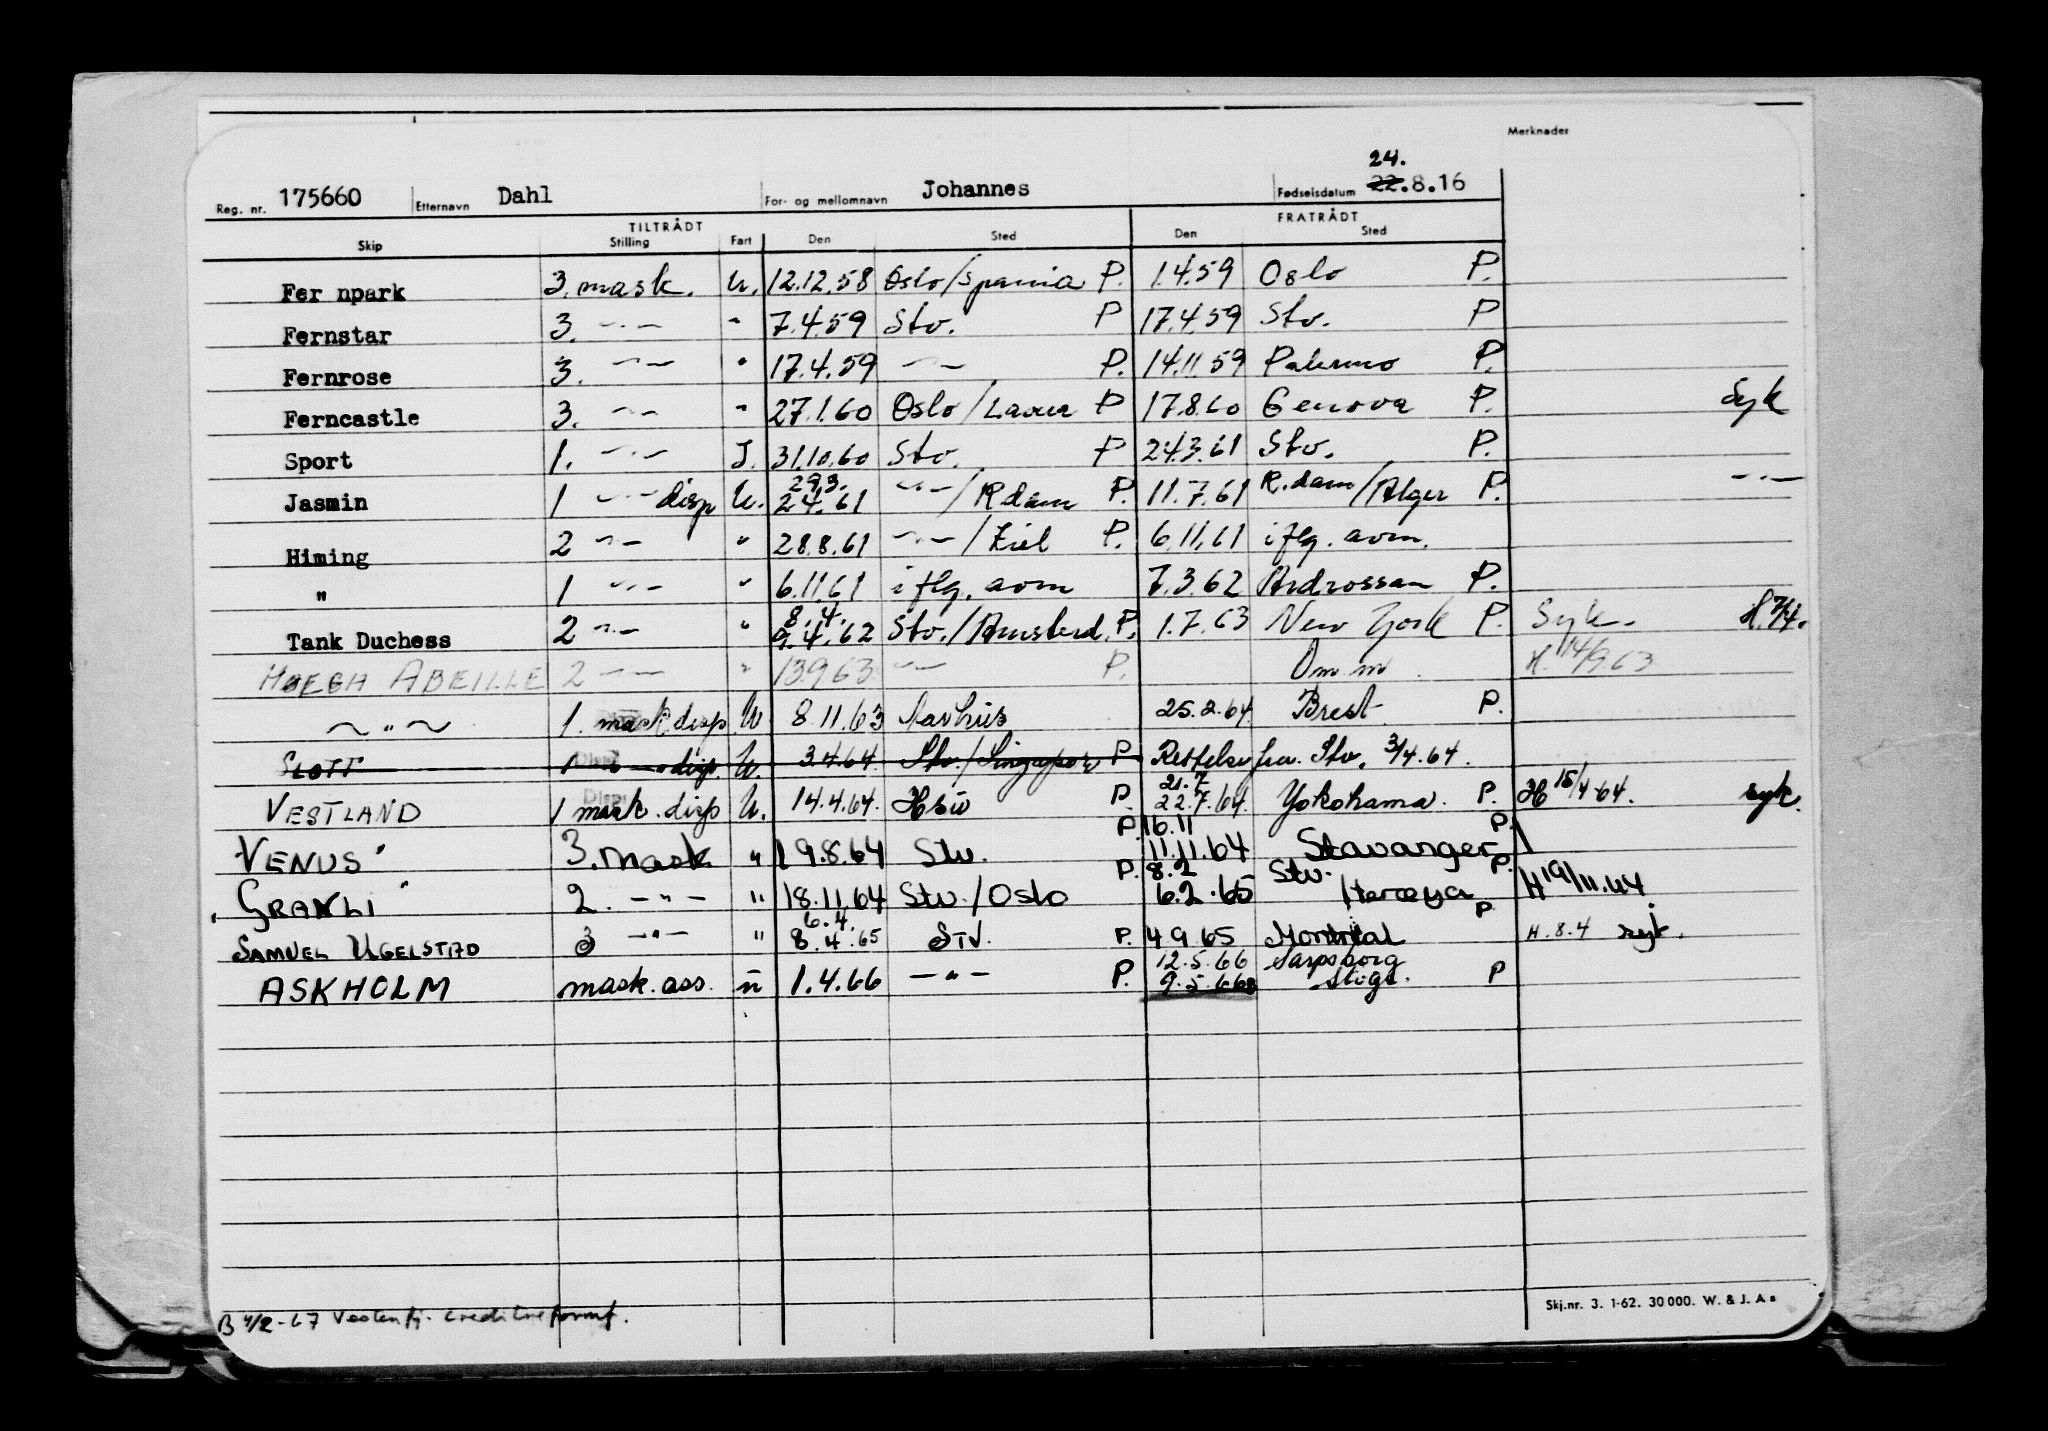 Merknader
24.
Reg. nr. 175660 Etternavn Dahl For- og mellomnavn Johannes Fødselsdatum 22.8.16
TILTRÅDT FRATRÅDT
Skip Stilling Fart Den Sted Den Sted
Fer npark 3. mask. U. 12.12.58 Oslo/Spania P. 1.4.59 Oslo P.
Fernstar 3. -"- " 7.4.59 Stv. P 17.4.59 Stv. P
Fernrose 3. -"- " 17.4.59 -"- P. 14.11.59 Palermo P.
Ferncastle 3. -"- " 27.1.60 Oslo/ P 17.8.60 Genova P. Syk
Sport 1. -"- J. 31.10.60 Stv. P 24.3.61 Stv. P.
29.3.
Jasmin 1 -"- disp U. 24.61 -"-/R.dam P. 11.7.61 R.dam/Alger P. -"-
Himing 2 -"- " 28.8.61 -"-/Kiel P. 6.11.61 iflg. avm.
" 1 -"- " 6.11.61 iflg. avm 7.3.62 Ardrossan P.
8.4.
Tank Duchess 2 -"- " 9.4.62 Stv./Amsterd. P. 1.7.63 New York P. Syk. H.
HØEGH ABEILLE 2 -"- " 13.9.63 -"- P. Omm. H. 14/9.63
-"- 1. mask. disp. U. 8.11.63 Aarhus 25.2.64 Brest P.
SLOTT 1 -"- disp. U. 3.4.64 Stv./Singapor P Rettelse fra Stv. 3/4.64.
21.7
VESTLAND 1 mask. disp U. 14.4.64. P 22.7.64. Yokohama. P. H 15/4-64. syk.
P. 16.11 P.
VENUS 3. mask " 19.8.64 Stv. 11.11.64 Stavanger
P. 8.2 Stv. P.
GRANLI 2. -"- " 18.11.64 Stv./Oslo 6.2.65 /Herøya P H 19/11.64
6.4.
SAMUEL UGELSTAD 3 -"- " 8.4.65 STV. P. 4 9 65 Montreal H. 8.4 syk.
12.5.66 Sarpsborg
ASKHOLM mask. ass. " 1.4.66 -"- P. 9.5.66 P
B 4/2-67
Skj.nr. 3. 1-62. 30 000. W. & J. A s